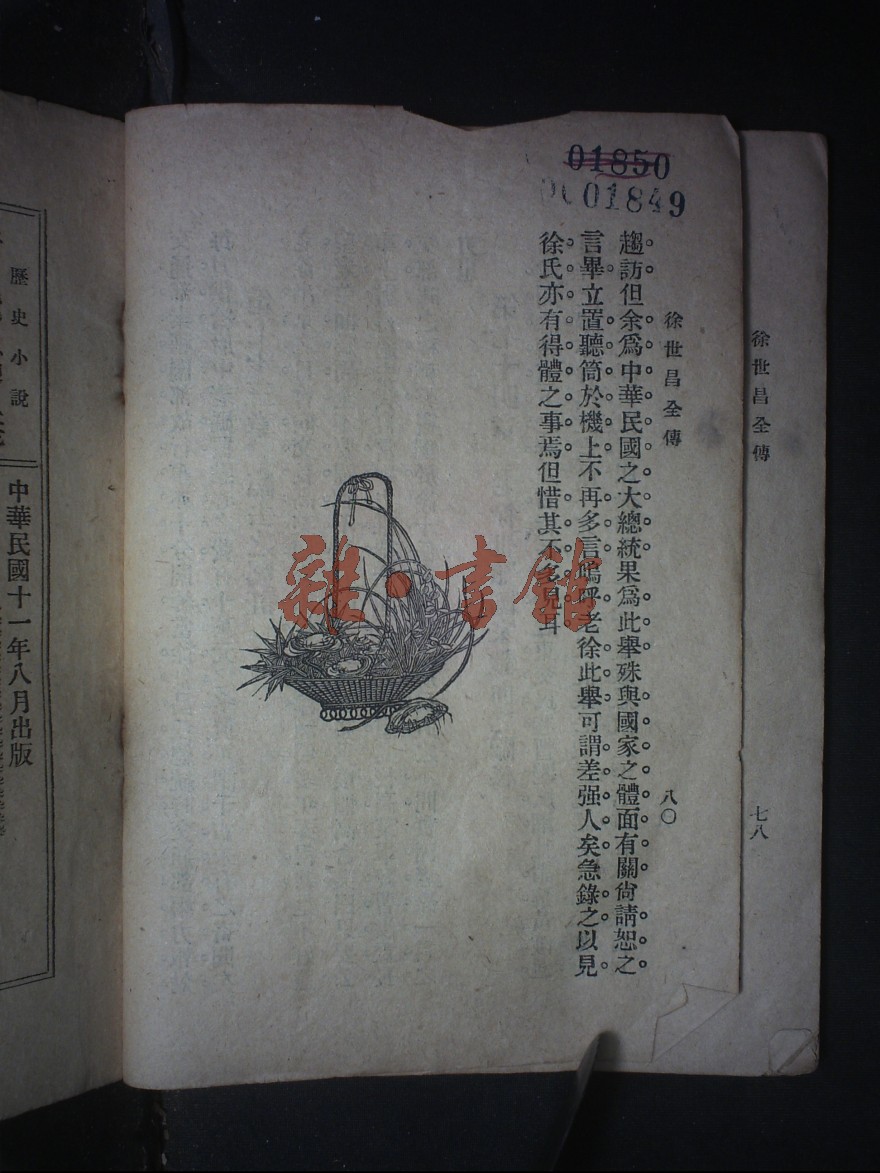 01850
01849
徐世昌全傳
七八
徐世昌全傳
八〇
趨訪但余爲中華民國之大總統果爲此舉殊與國家之體面有關尙請恕之
言畢立置聽筒於機上不再多言嗚呼老徐此舉可謂差强人矣急錄之以見
徐氏亦有得體之事焉但惜其不多見耳
雜·書館
中華民國十一年八月出版
歷史小說